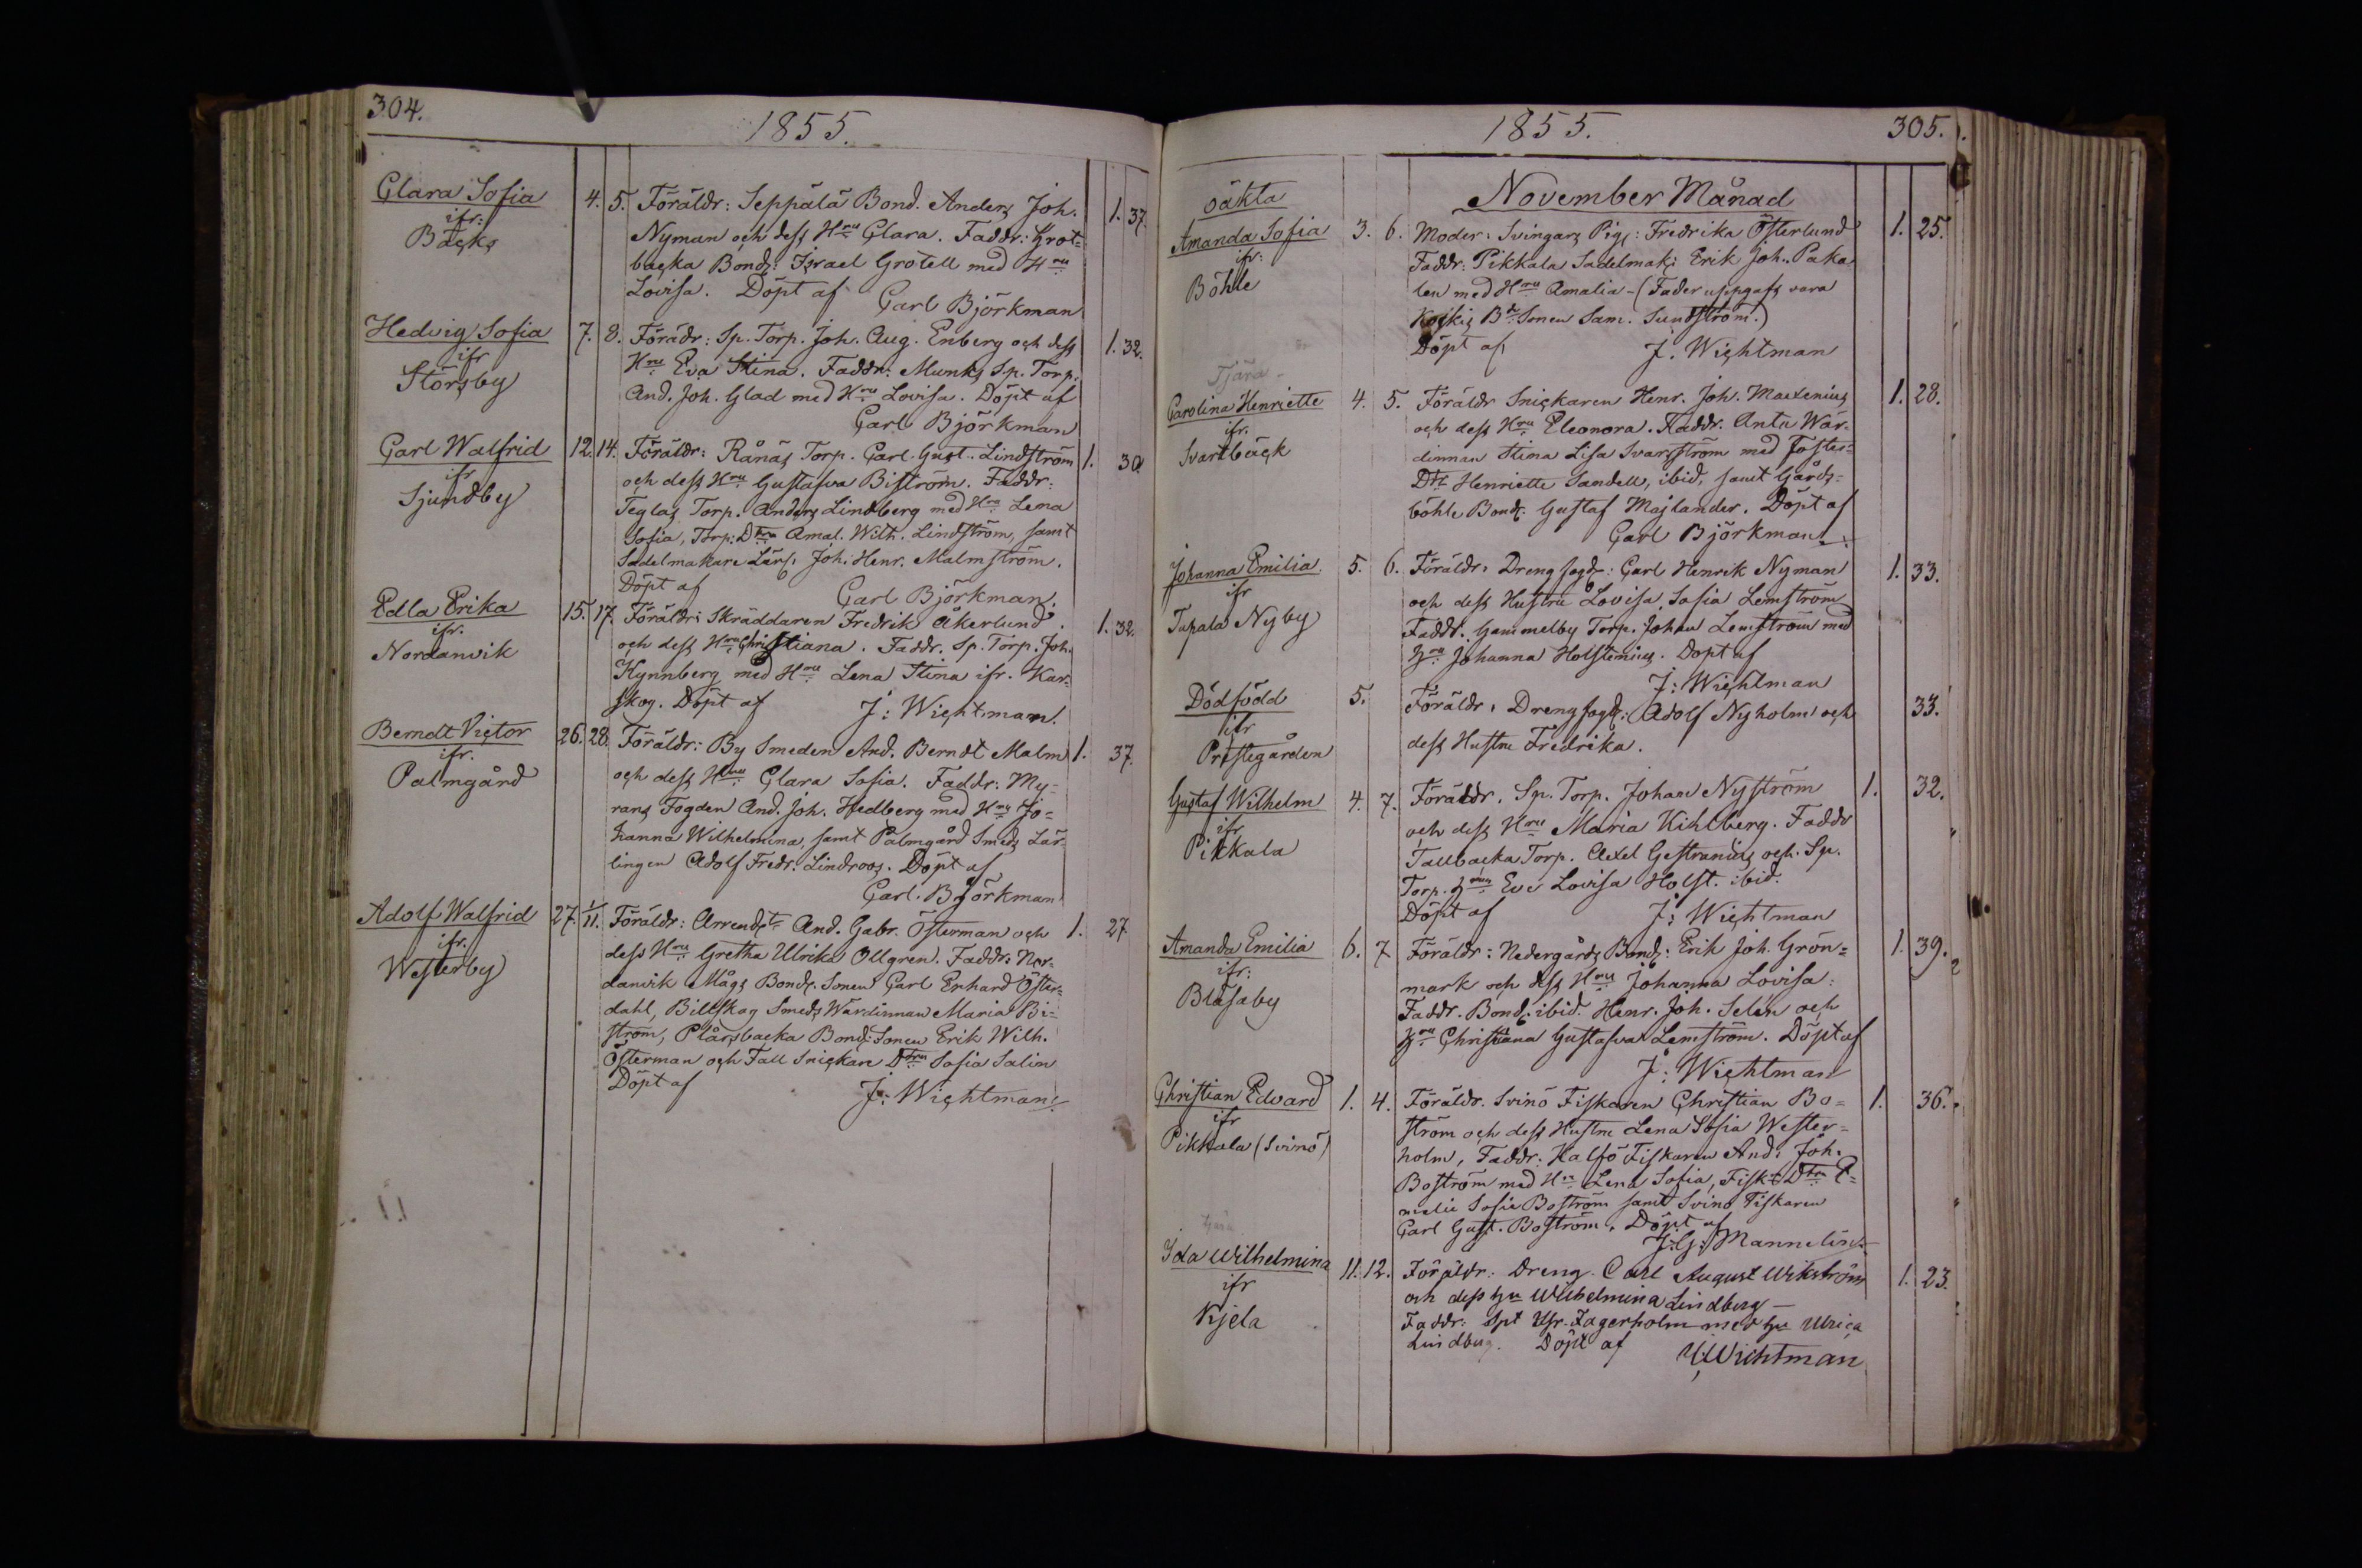 304.
1855.
Clara Sofia
ifr:
Bäcks
4. 5. Föräldr: Seppälä Bond. Anders Joh.
Nyman och dess Hru Clara. Faddr: Krot-
backa Bond: Israel Grotell med Hru
Lovisa. Döpt af Carl Björkman
1. 37.
Hedvig Sofia
ifr
Störsby
7. 8. Förädr: Sp. Torp. Joh. Aug. Enberg och dess
Hru Eva Stina. Faddr: Munks Sp. Torp.
And. Joh. Glad med Hru Lovisa. Döpt af
Carl Björkman
1. 32.
Carl Walfrid
ifr
Sjundby
12. 14. Föräldr: Rånäs Torp. Carl. Gust. Lindström
och dess Hru Gustafva Biström. Faddr:
Teglas Torp. Anders Lindberg med Hru Lena
Sofia, Torp: Dtra Amal. Wilh. Lindström, samt
Sadelmakare Lärl. Joh. Henr. Malmström.
Döpt af Carl Björkman.
1. 30
Edla Erika
ifr.
Nordanvik
15. 17. Föräldr: Skräddaren Fredrik Åkerlund
och dess Hru Christiana. Faddr. Sp. Torp. Joh.
Kynnberg med Hru Lena Stina ifr. Kar-
skog. Döpt af J: Wichtman.
1. 32.
Berndt Victor
ifr.
Palmgård
26. 28. Föräldr: By Smeden And. Berndt Malm
och dess Hru Clara Sofia. Faddr: My-
rans Fogden And. Joh. Hedberg med Hru Jo-
hanna Wilhelmina, samt Palmgård Smeds Lär-
lingen Adolf Fredr. Lindroos. Döpt af
Carl. Björkman
1. 37.
Adolf Walfrid
ifr.
Westerby
27. 1/11. Föräldr: Arrendt. And. Gabr. Österman och
dess Hru Gretha Ulrika Ollgren. Faddr: Nor-
danvik Mågs Bond. Sonen Carl Erhard Öster-
dahl, Billskog Smeds Wärdinnan Maria Bi-
ström, Plårsbacka Bond: Sonen Erik Wilh.
Österman och Fall Snickare Dtrn Sofia Salin
Döpt af J: Wichtman
1. 27
1855.
305.
November Månad
oäkta
Amanda Sofia
ifr:
Böhle
3. 6. Moder: Svingars Pig: Fredrika Österlund
Faddr: Pikkala Sadelmak: Erik Joh. Paka
len med Hru Amalia - (Fader uppgafs vara
Koskis Bde Sonen Sam. Sundström.)
Döpt af J. Wichtman
1. 25.
Tjära
Carolina Henriette
ifr.
Svartbäck
4. 5. Föräldr Snickaren Henr. Joh. Maxenius
och dess Hru Eleonora. Faddr. Antu Wär-
dinnan Stina Lisa Svarsström med Foster-
Dtr Henriette Sandell, ibid, samt Gårds-
böhle Bond. Gustaf Majlander. Döpt af
Carl Björkman
1. 28.
Johanna Emilia
ifr
Tupala Nyby
5. 6. Föräldr: Drengfogd: Carl Henrik Nyman
och dess Hustru Lovisa Sofia Lemström
Faddr. Gammelby Torp. Johan Lemström med
Hru Johanna Holstenius. Döpt af
J: Wichtman
1. 33.
Dödfödd
ifr
Prestegården
5. Föräldr: Drengfogd: Adolf Nyholm och
dess Hustru Fredrika.
33.
Gustaf Wilhelm
ifr
Pikkala
4. 7. Föräldr. Sp. Torp. Johan Nyström
och dess Hru Maria Kihlberg. Faddr
Tallbacka Torp. Axel Gestranius och Sp.
Torp. Hru Eva Lovisa Holst. ibid.
Döpt af J: Wichtman
1. 32.
Amanda Emilia
ifr:
Blåsaby
6. 7 Föräldr: Nedergårds Bond: Erik Joh. Grön-
mark och dess Hru Johanna Lovisa:
Faddr. Bond. ibid. Henr. Joh. Selin och
Hru Christiana Gustafva Lemström. Döpt af
J: Wichtman
1. 39.
Christian Edvard
ifr
Pikkala (Svinö)
1. 4. Föräldr. Svinö Fiskaren Christian Bo-
ström och dess Hustru Lena Sofia Wester-
holm, Faddr: Halsö Fiskaren And: Joh.
Boström med Hru Lena Sofia, Fisk: Dtrn E-
melie Sofie Boström samt Svinö Fiskaren
Carl Gust. Boström. Döpt af
J: G: Mannelin
1. 36.
Ida Wilhelmina
ifr
Kjela
11. 12. Föräldr: Dreng. Carl August Wikström
och dess hu Wilhelmina Lindberg —
Faddr: Spt Ufr. Fagerholm med hu Ulrica
Lindberg. Döpt af J: Wichtman
1. 23.